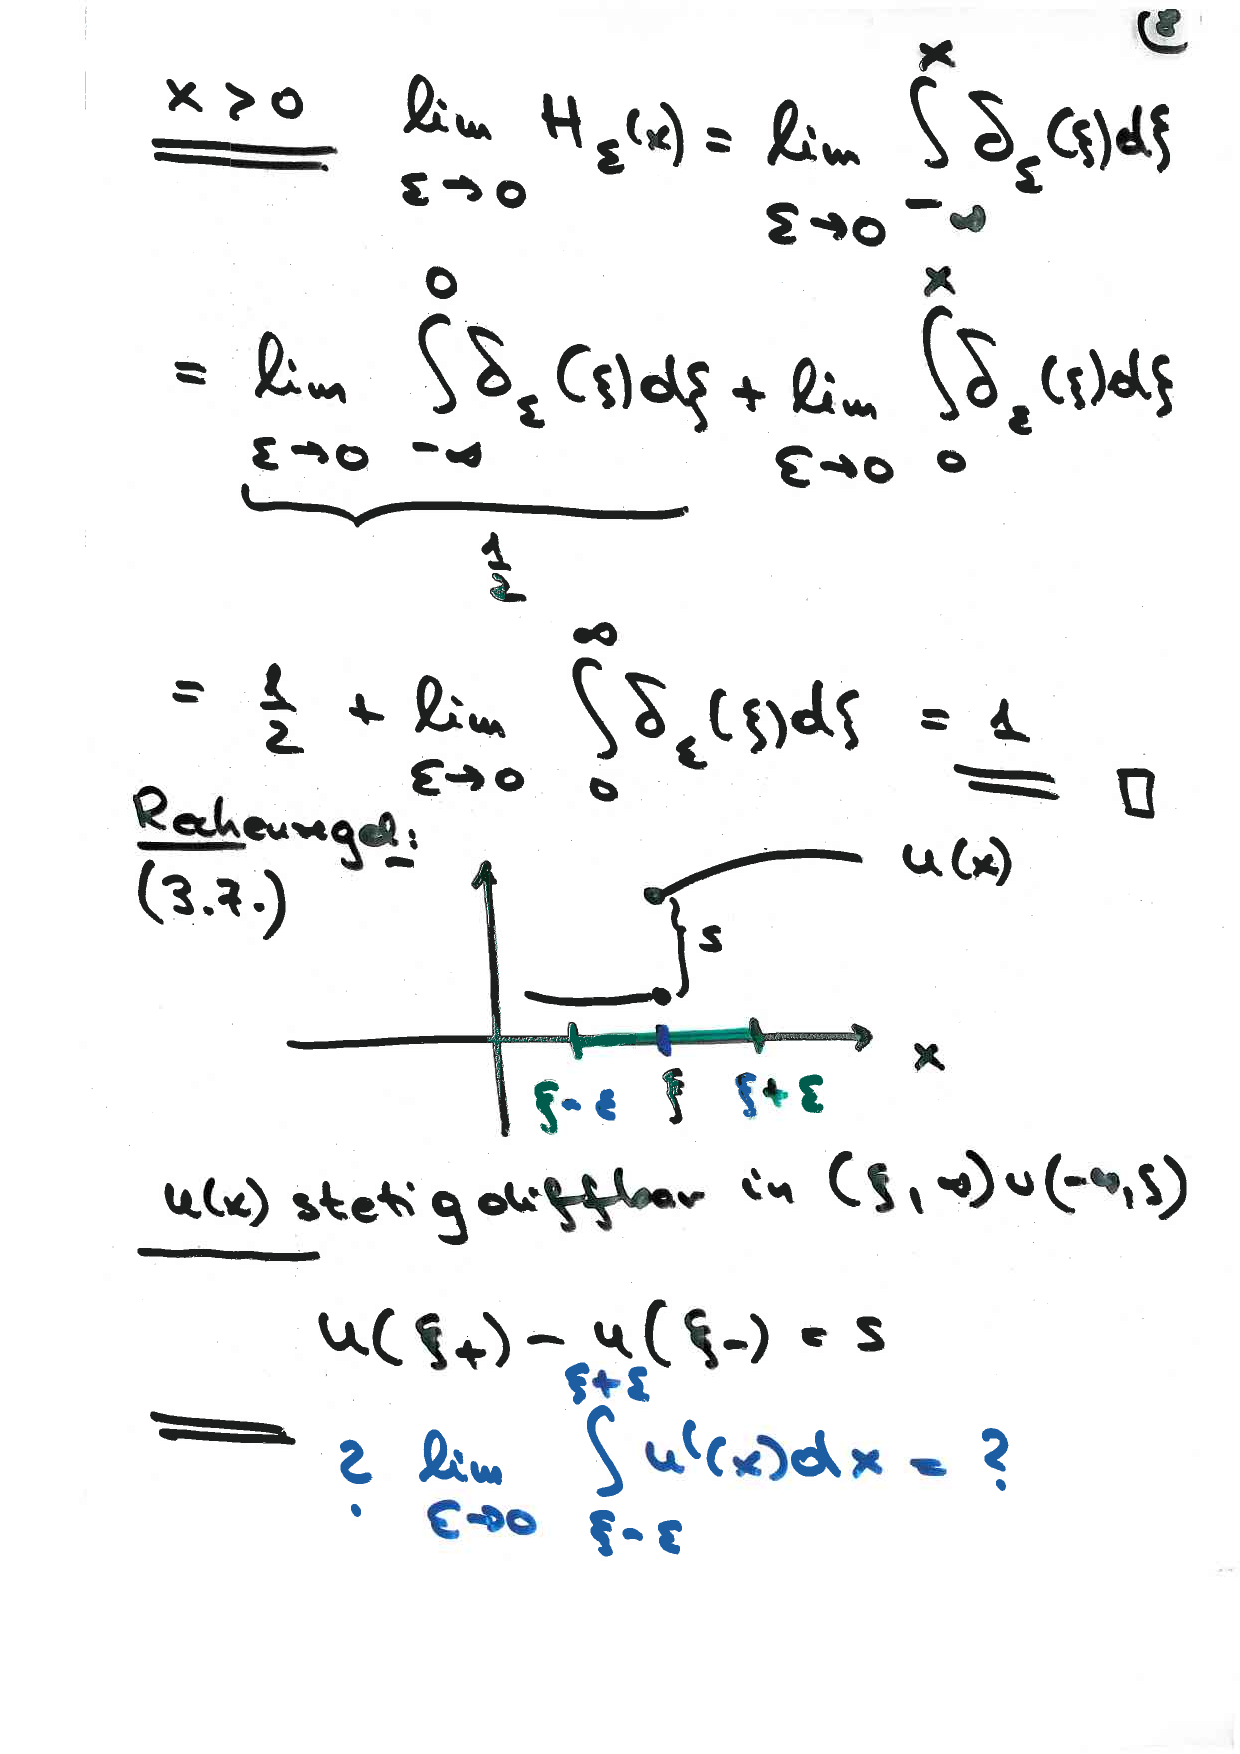 8
x > 0 lim_{ε→0} H_ε(x) = lim_{ε→0} ∫_{-∞}^{x} δ_ε(ξ)dξ
= lim_{ε→0} ∫_{-∞}^{0} δ_ε(ξ)dξ + lim_{ε→0} ∫_{0}^{x} δ_ε(ξ)dξ
1/2
= 1/2 + lim_{ε→0} ∫_{0}^{∞} δ_ε(ξ)dξ = 1 □
Rechenregel:
(3.7.)
u(x)
s
x
ξ-ε ξ ξ+ε
u(x) stetig diffbar in (ξ,∞)∪(-∞,ξ)
u(ξ+) - u(ξ-) = s
? lim_{ε→0} ∫_{ξ-ε}^{ξ+ε} u'(x)dx = ?